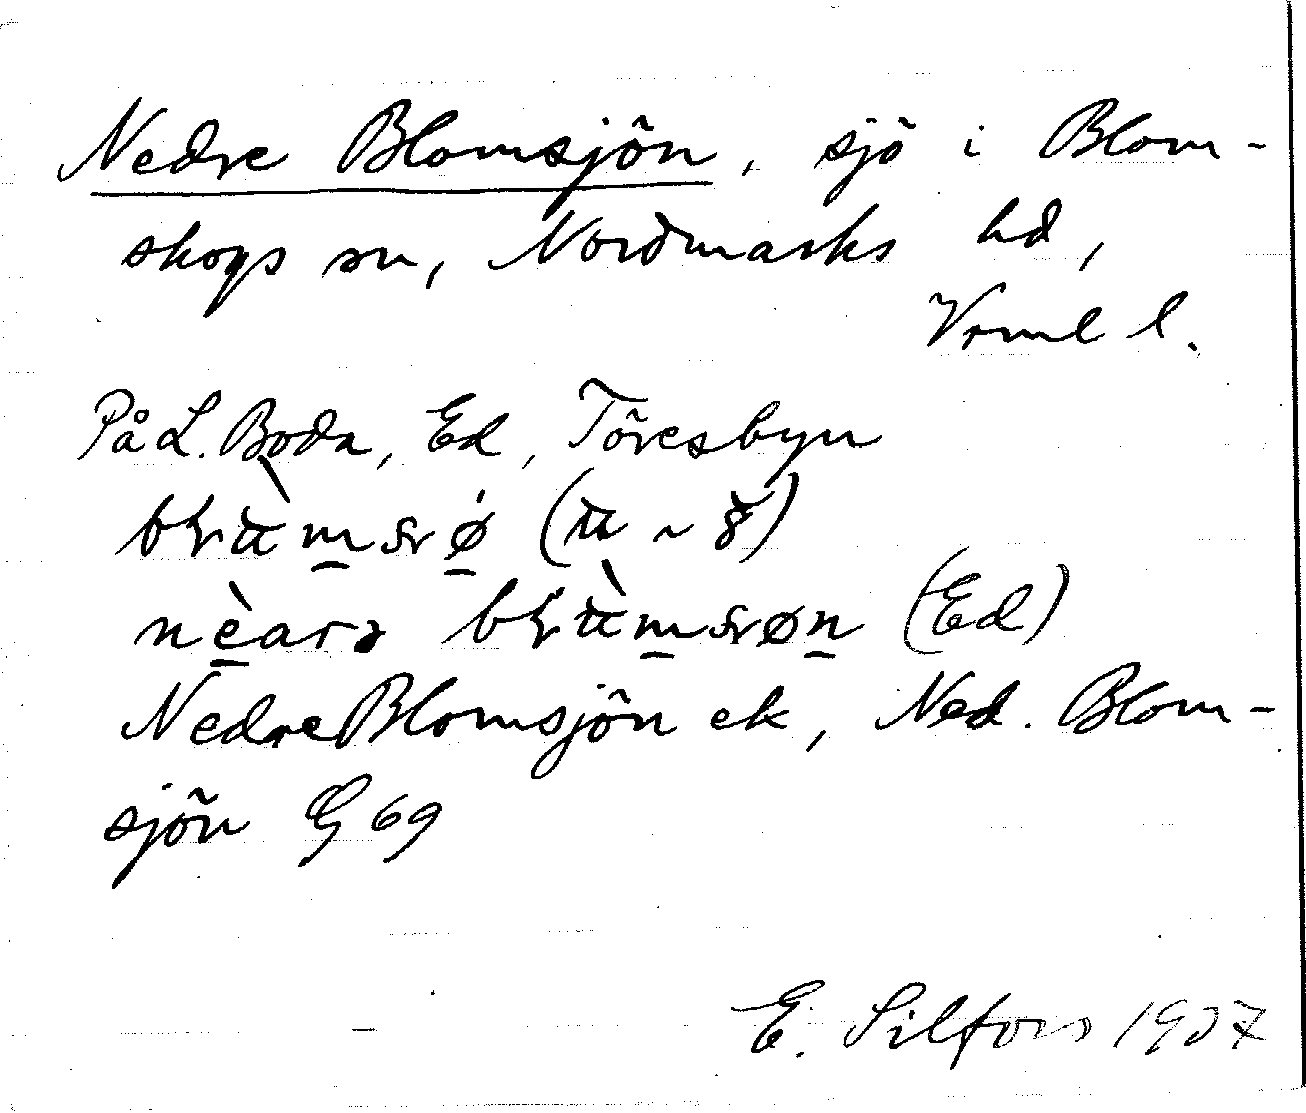 Nedre Blomsjön, sjö i Blom-
skogs sn, Nordmarks hd,
Vrml l.
På L. Boda, Ed, Töresbyn
(Ed)
Nedre Blomsjön ek, Ned. Blom-
sjön G 69
E. Silfors 1937